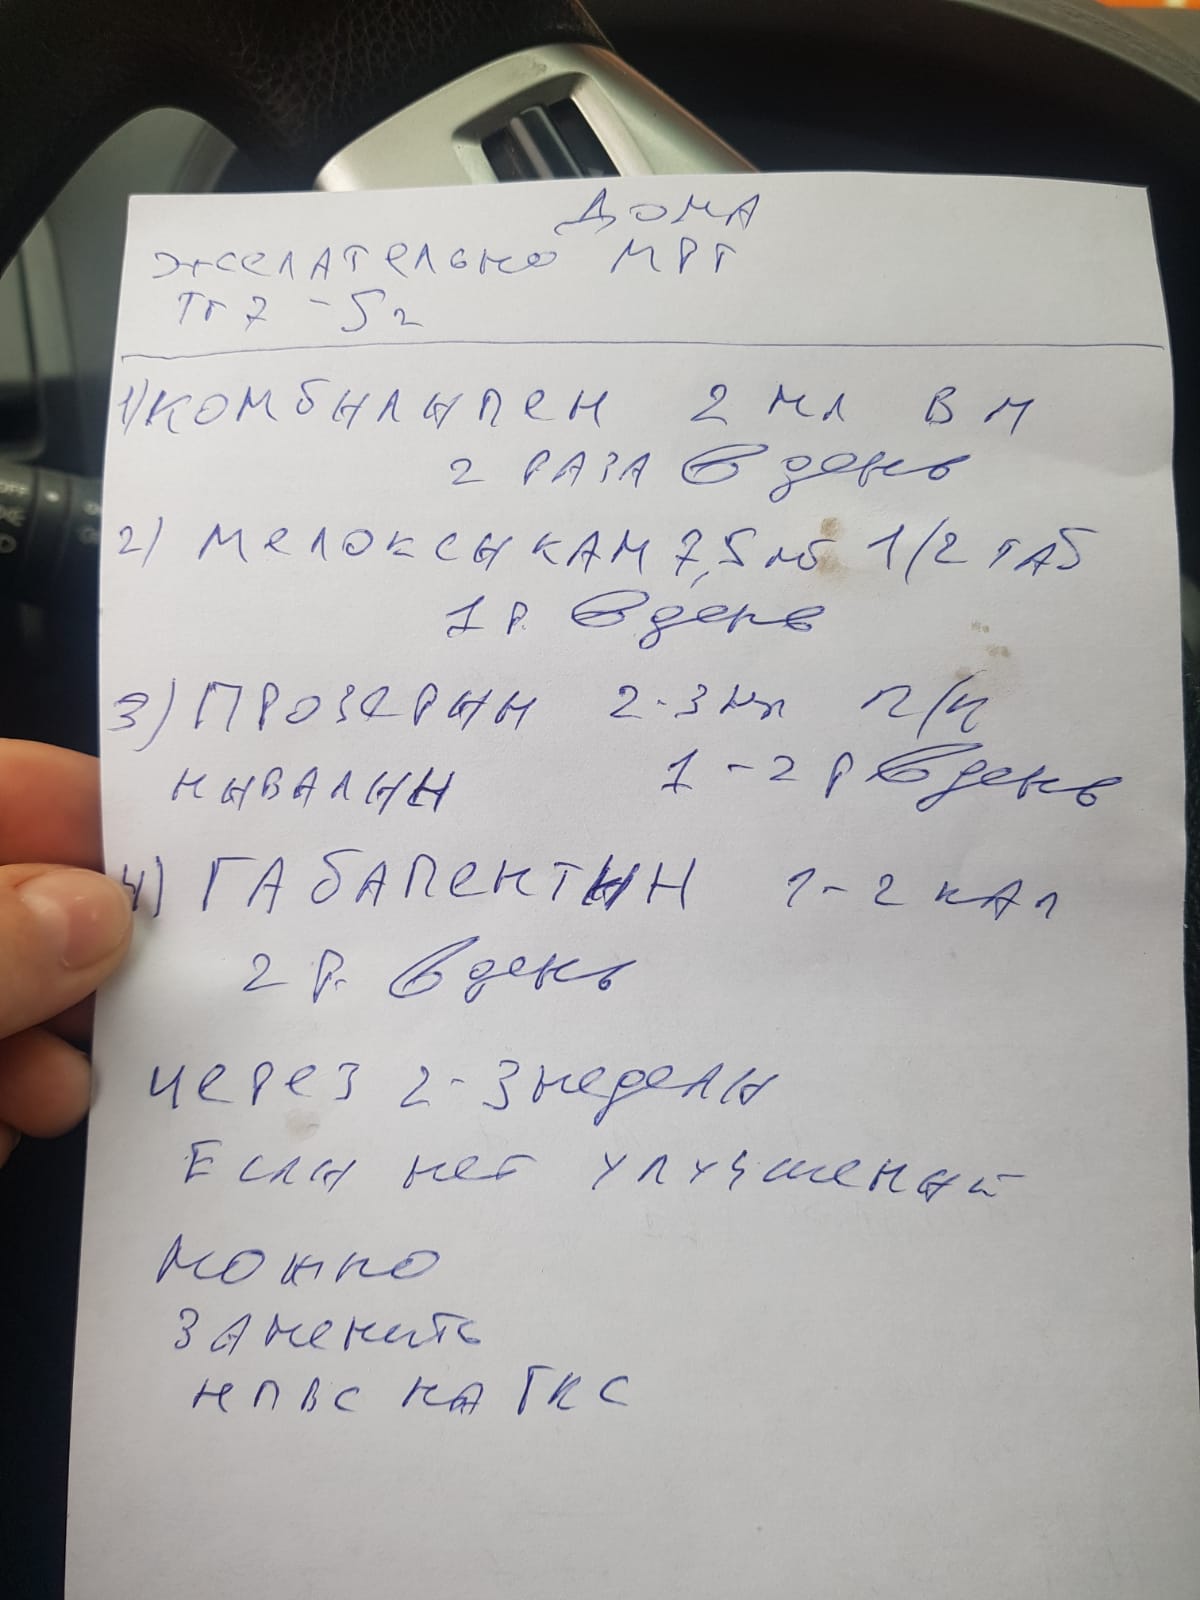 ДОМА
ЖЕЛАТЕЛЬНО МРТ
Th7 - S2
1) КОМБИЛИПЕН 2 мл в м
2 РАЗА в день
2) МЕЛОКСИКАМ 7,5 мг 1/2 ТАБ
1 р. в день
3) ПРОЗЕРИН 2-3 мл п/к
НИВАЛИН 1-2 р в день
4) ГАБАПЕНТИН 1-2 кап
2 р. в день
ЧЕРЕЗ 2-3 недели
Если нет улучшений
можно
заменить
НПВС на ГКС